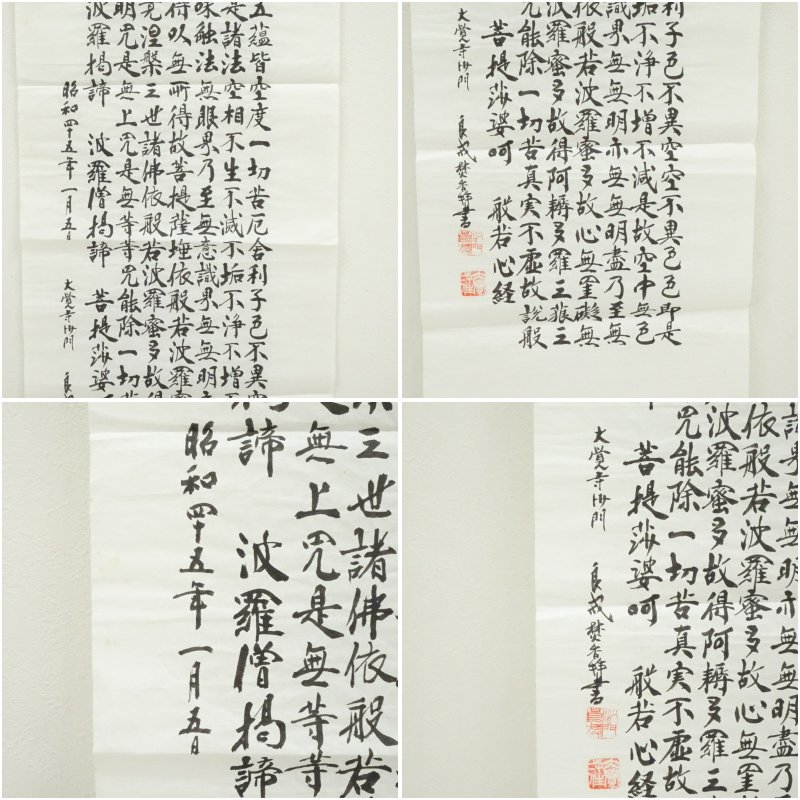 五蘊皆空度一切苦厄舍利子色不異空
是諸法空相不生不滅不垢不浄不増不
味触法無眼界乃至無意識界無無明亦
得以無所得故菩提薩埵依般若波羅蜜
竟涅槃三世諸佛依般若波羅蜜多故得
明咒是無上咒是無等等咒能除一切苦
波羅掲諦 波羅僧掲諦 菩提莎婆
昭和四十五年一月五日 大覚寺沙門 良
利子色不異空空不異色色即是
垢不浄不増不減是故空中無色
識界無無明亦無無明盡乃至無
依般若波羅蜜多故心無罣礙無
波羅蜜多故得阿耨多羅三藐三
咒能除一切苦真実不虚故説般
菩提莎婆呵 般若心経
大覚寺沙門 良戒焚香拝書
三世諸佛依般若
無上咒是無等等
諦 波羅僧掲諦
昭和四十五年一月五日
界無無明亦無無明盡乃
依般若波羅蜜多故心無罣
波羅蜜多故得阿耨多羅三
咒能除一切苦真実不虚故
菩提莎婆呵 般若心経
大覚寺沙門 良戒焚香拝書